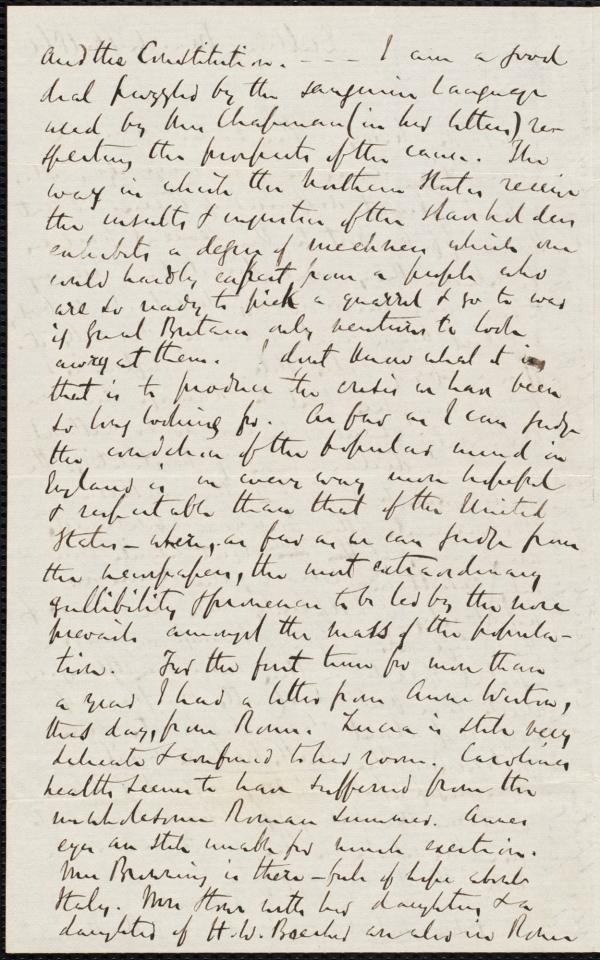 and the Constitution. - - - - I am a good
deal puzzled by the sanguine language
used by Mrs Chapman (in her letters) re-
specting the prospects of the cause. The
way in which the Northern States receive
the insults & injustice of the slaveholders
exhibits a degree of meekness which one
could hardly expect from a people who
are so ready to pick a quarrel & go to war
if Great Britain only ventures to look
awry at them. I don't know what it is
that is to produce the crisis we have been
so long looking for. As far as I can judge
the condition of the popular mind in
England is in every way more hopeful
& respectable than that of the United
States - where, as far as we can judge from
the newspapers, the most extraordinary
gullibility & proneness to be led by the nose
prevails amongst the mass of the popula-
tion. For the first time for more than
a year I had a letter from Anne Weston,
this day, from Rome. Lucia is still very
delicate & confined to her room. Caroline's
health seems to have suffered from the
unwholesome Roman summer. Annes
eyes are still unable for much exertion.
Mrs Browning is there - full of hope about
Italy. Mrs Stowe with her daughters & a
daughter of H.W. Beecher are also in Rome